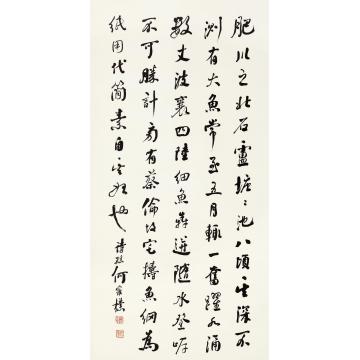 肥川之北石靈塘〻池八頃其深不
測有大魚常至五月輒一奮躍水涌
數丈波襄四陸細魚奔迸隨水登岸
不可勝計旁有蔡倫故宅擣魚網為
紙用代簡素自其始也 詩孫何維樸